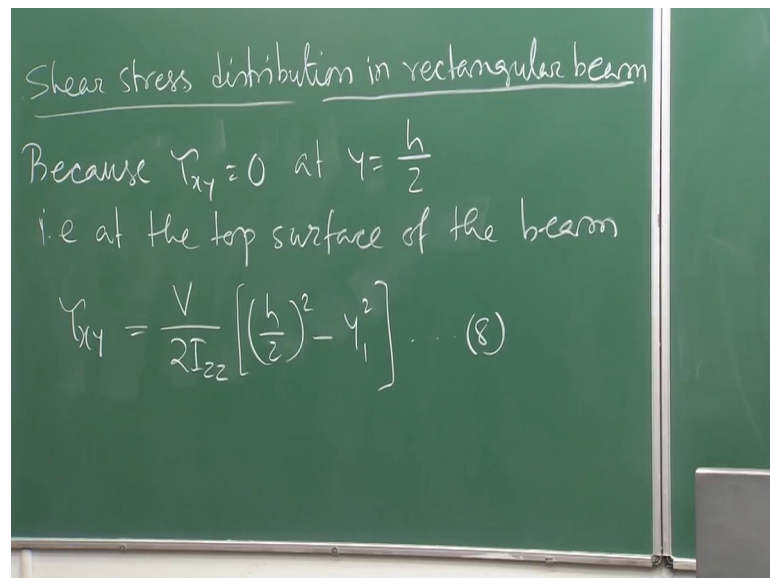 Shear stress distribution in rectangular beam
Because τxy = 0 at y = h/2
i.e at the top surface of the beam
τxy = V/2Izz [(h/2)² - y₁²] .... (8)